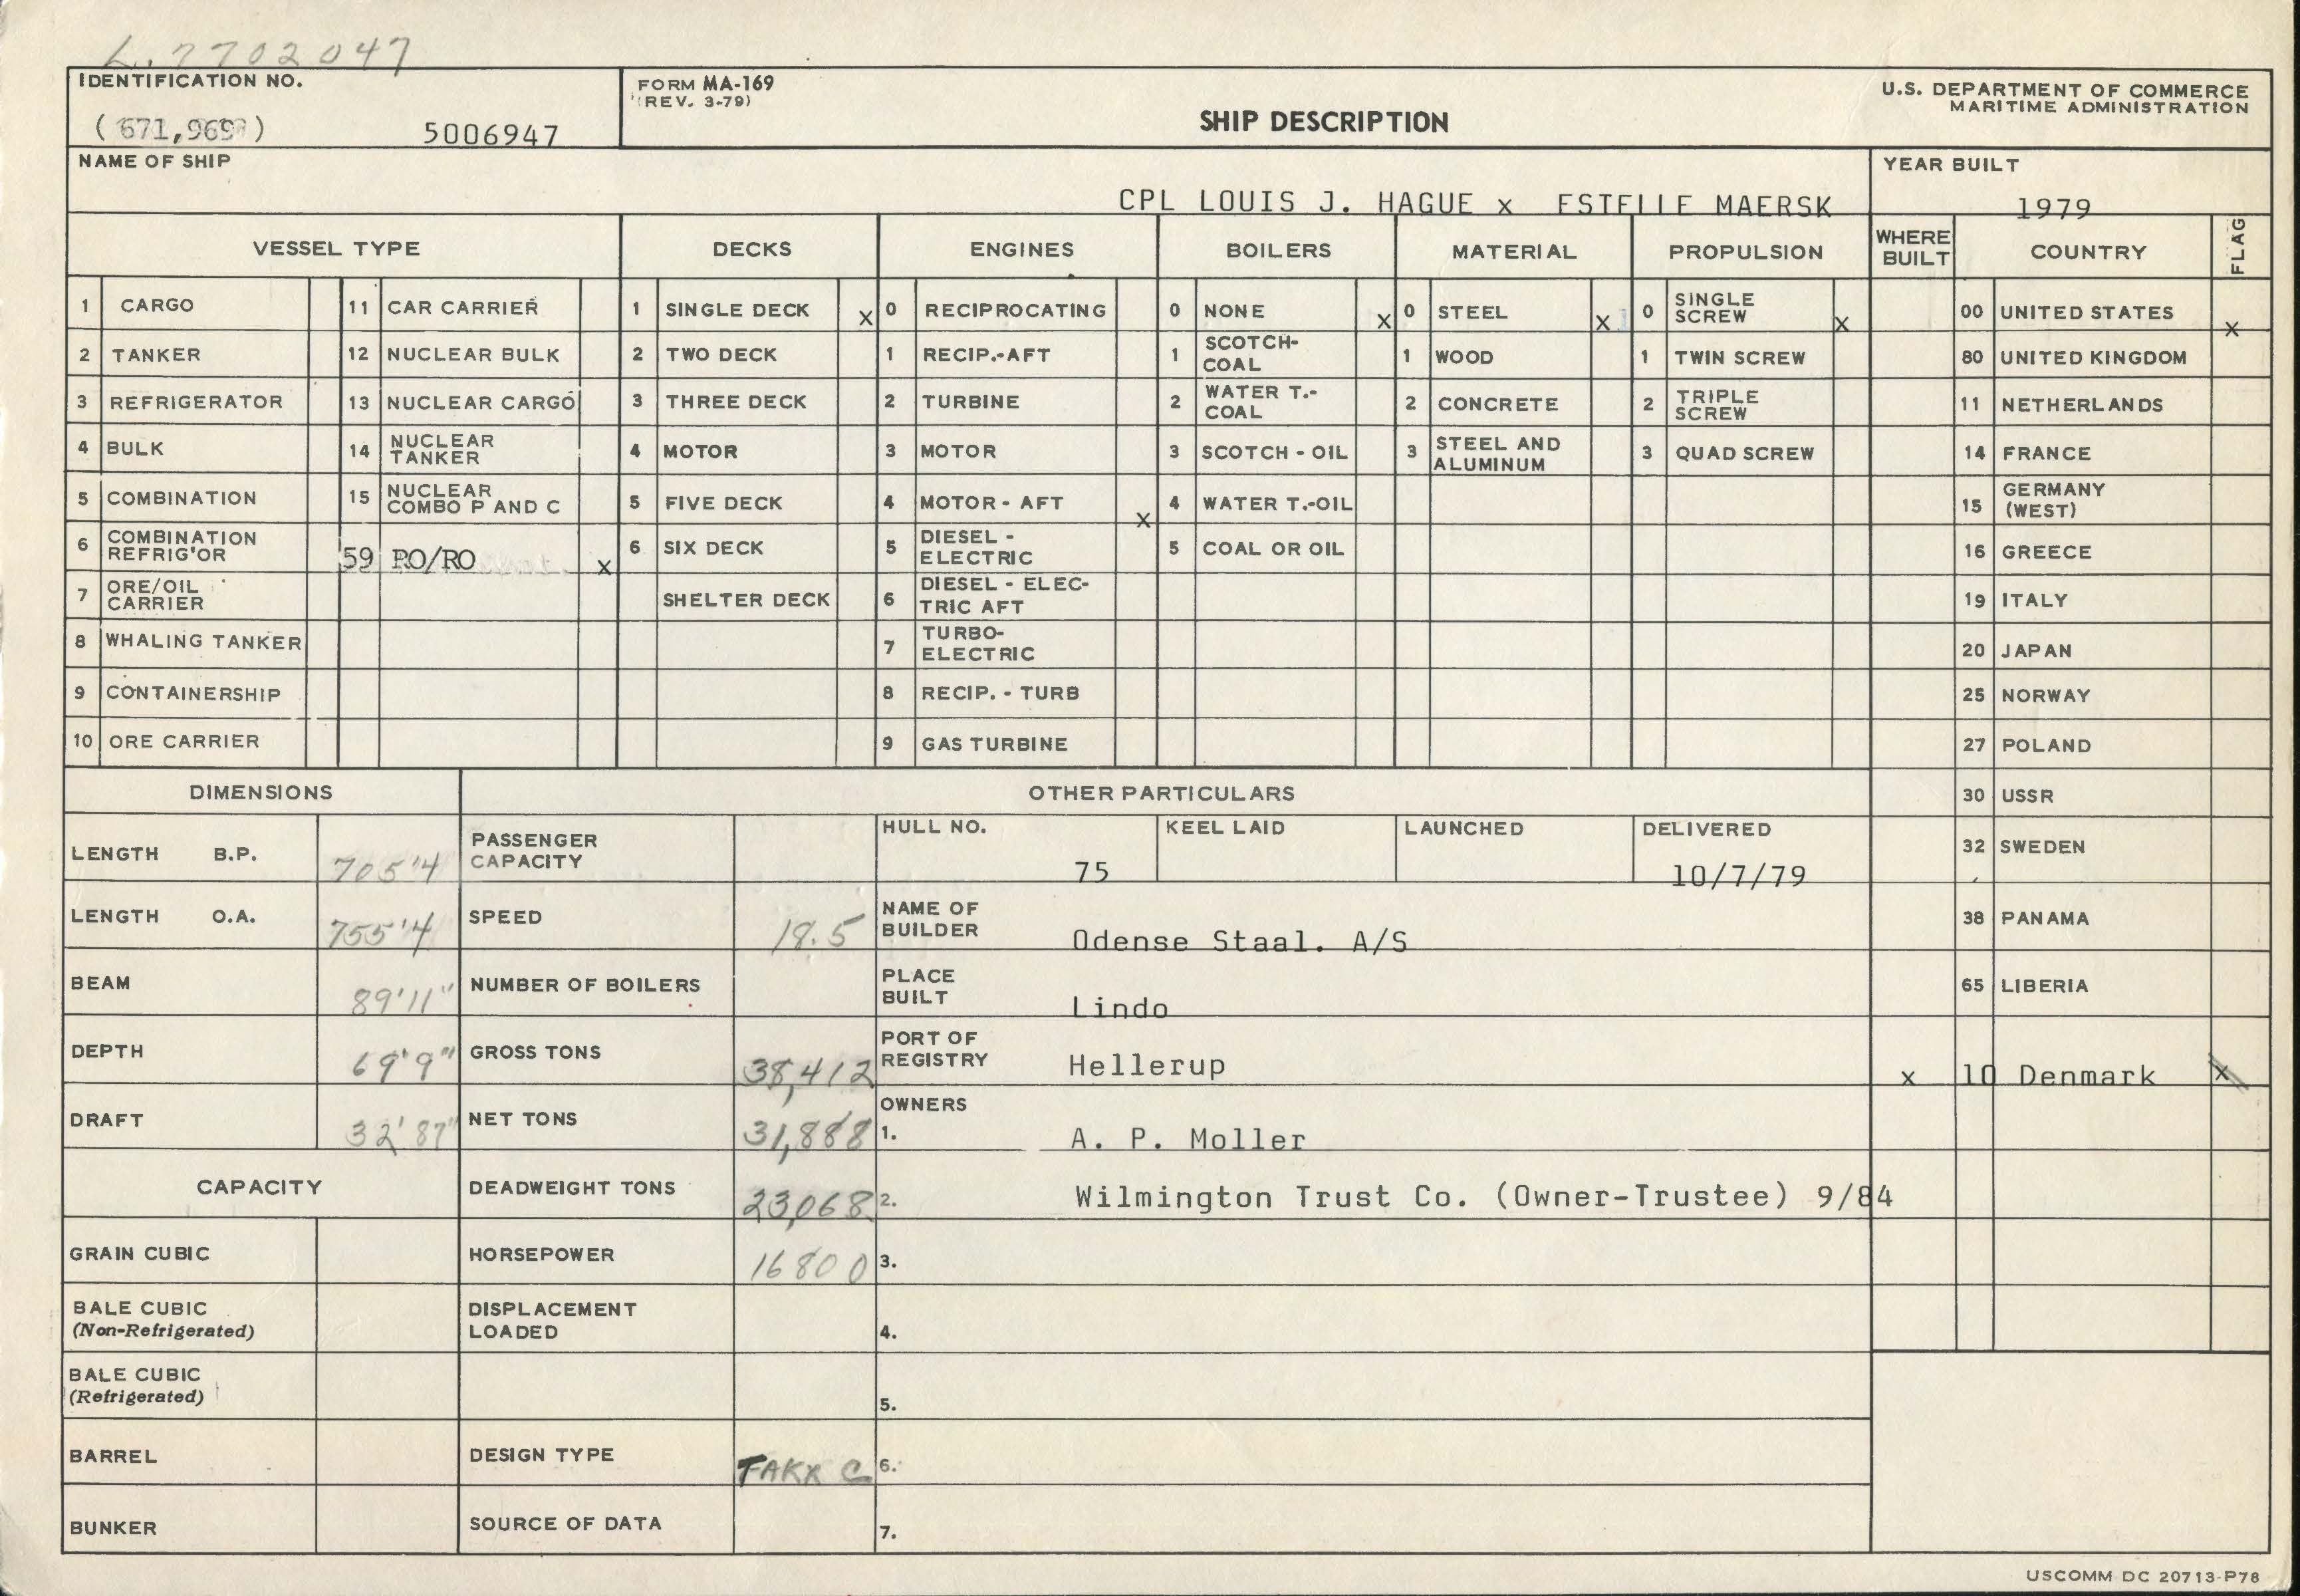 L. 7702047
IDENTIFICATION NO.
(671,969) 5006947
FORM MA-169
(REV. 3-79)
SHIP DESCRIPTION
U.S. DEPARTMENT OF COMMERCE
MARITIME ADMINISTRATION
NAME OF SHIP
CPL LOUIS J. HAGUE x ESTELLE MAERSK
YEAR BUILT
1979
VESSEL TYPE DECKS ENGINES BOILERS MATERIAL PROPULSION WHERE BUILT COUNTRY FLAG
1 CARGO 11 CAR CARRIER 1 SINGLE DECK x 0 RECIPROCATING 0 NONE x 0 STEEL x 0 SINGLE SCREW x 00 UNITED STATES x
2 TANKER 12 NUCLEAR BULK 2 TWO DECK 1 RECIP.-AFT 1 SCOTCH-COAL 1 WOOD 1 TWIN SCREW 80 UNITED KINGDOM
3 REFRIGERATOR 13 NUCLEAR CARGO 3 THREE DECK 2 TURBINE 2 WATER T.-COAL 2 CONCRETE 2 TRIPLE SCREW 11 NETHERLANDS
4 BULK 14 NUCLEAR TANKER 4 MOTOR 3 MOTOR 3 SCOTCH - OIL 3 STEEL AND ALUMINUM 3 QUAD SCREW 14 FRANCE
5 COMBINATION 15 NUCLEAR COMBO P AND C 5 FIVE DECK 4 MOTOR - AFT x 4 WATER T.-OIL 15 GERMANY (WEST)
6 COMBINATION REFRIG'OR 59 RO/RO x 6 SIX DECK 5 DIESEL - ELECTRIC 5 COAL OR OIL 16 GREECE
7 ORE/OIL CARRIER SHELTER DECK 6 DIESEL - ELEC-TRIC AFT 19 ITALY
8 WHALING TANKER 7 TURBO-ELECTRIC 20 JAPAN
9 CONTAINERSHIP 8 RECIP. - TURB 25 NORWAY
10 ORE CARRIER 9 GAS TURBINE 27 POLAND
DIMENSIONS OTHER PARTICULARS 30 USSR
LENGTH B.P. 705'4 PASSENGER CAPACITY HULL NO. 75 KEEL LAID LAUNCHED DELIVERED 10/7/79 32 SWEDEN
LENGTH O.A. 755'4 SPEED 18.5 NAME OF BUILDER Odense Staal. A/S 38 PANAMA
BEAM 89'11" NUMBER OF BOILERS PLACE BUILT Lindo 65 LIBERIA
DEPTH 69'9" GROSS TONS 38,412 PORT OF REGISTRY Hellerup x 10 Denmark x
DRAFT 32'87" NET TONS 31,888 OWNERS 1. A. P. Moller
CAPACITY DEADWEIGHT TONS 23,068 2. Wilmington Trust Co. (Owner-Trustee) 9/84
GRAIN CUBIC HORSEPOWER 16800 3.
BALE CUBIC (Non-Refrigerated) DISPLACEMENT LOADED 4.
BALE CUBIC (Refrigerated) 5.
BARREL DESIGN TYPE TAKX C 6.
BUNKER SOURCE OF DATA 7.
USCOMM DC 20713-P78